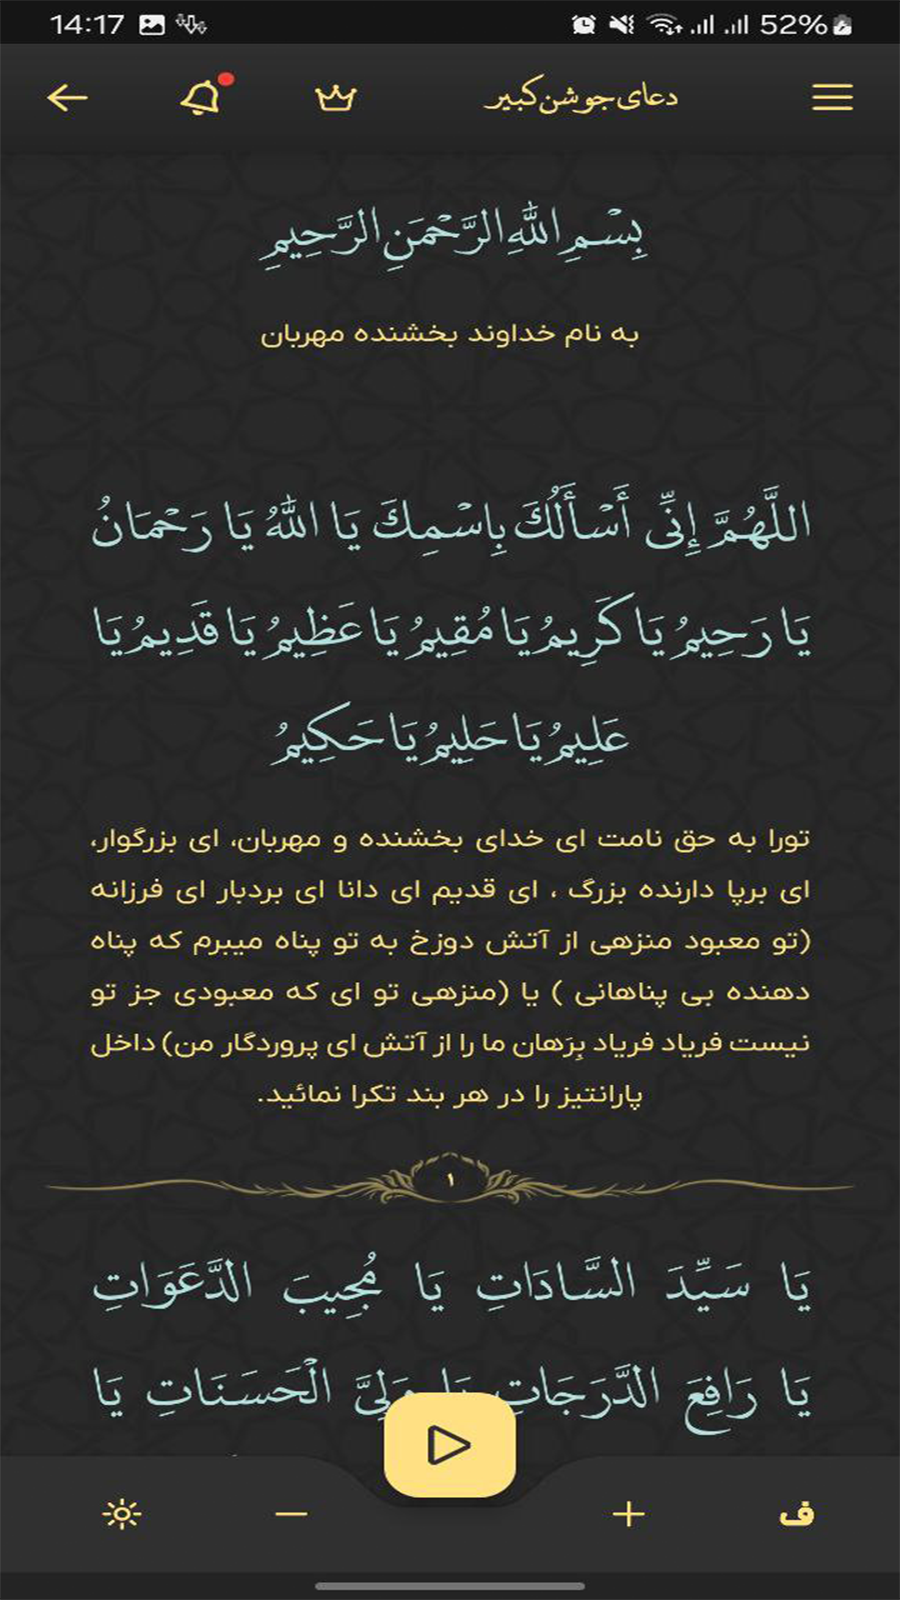 14:17 52%
دعای جوشن کبیر
بِسْمِ اللَّهِ الرَّحْمَنِ الرَّحِيمِ
به نام خداوند بخشنده مهربان
اللَّهُمَّ إِنِّی أَسْأَلُكَ بِاسْمِكَ يَا اللَّهُ يَا رَحْمَانُ
يَا رَحِيمُ يَا كَرِيمُ يَا مُقِيمُ يَا عَظِيمُ يَا قَدِيمُ يَا
عَلِيمُ يَا حَلِيمُ يَا حَكِيمُ
تورا به حق نامت ای خدای بخشنده و مهربان، ای بزرگوار،
ای برپا دارنده بزرگ ، ای قدیم ای دانا ای بردبار ای فرزانه
(تو معبود منزهی از آتش دوزخ به تو پناه میبرم که پناه
دهنده بی پناهانی ) یا (منزهی تو ای که معبودی جز تو
نیست فریاد فریاد بِرَهان ما را از آتش ای پروردگار من) داخل
پارانتیز را در هر بند تکرا نمائید.
۱
يَا سَيِّدَ السَّادَاتِ يَا مُجِيبَ الدَّعَوَاتِ
يَا رَافِعَ الدَّرَجَاتِ يَا وَلِيَّ الْحَسَنَاتِ يَا
ف